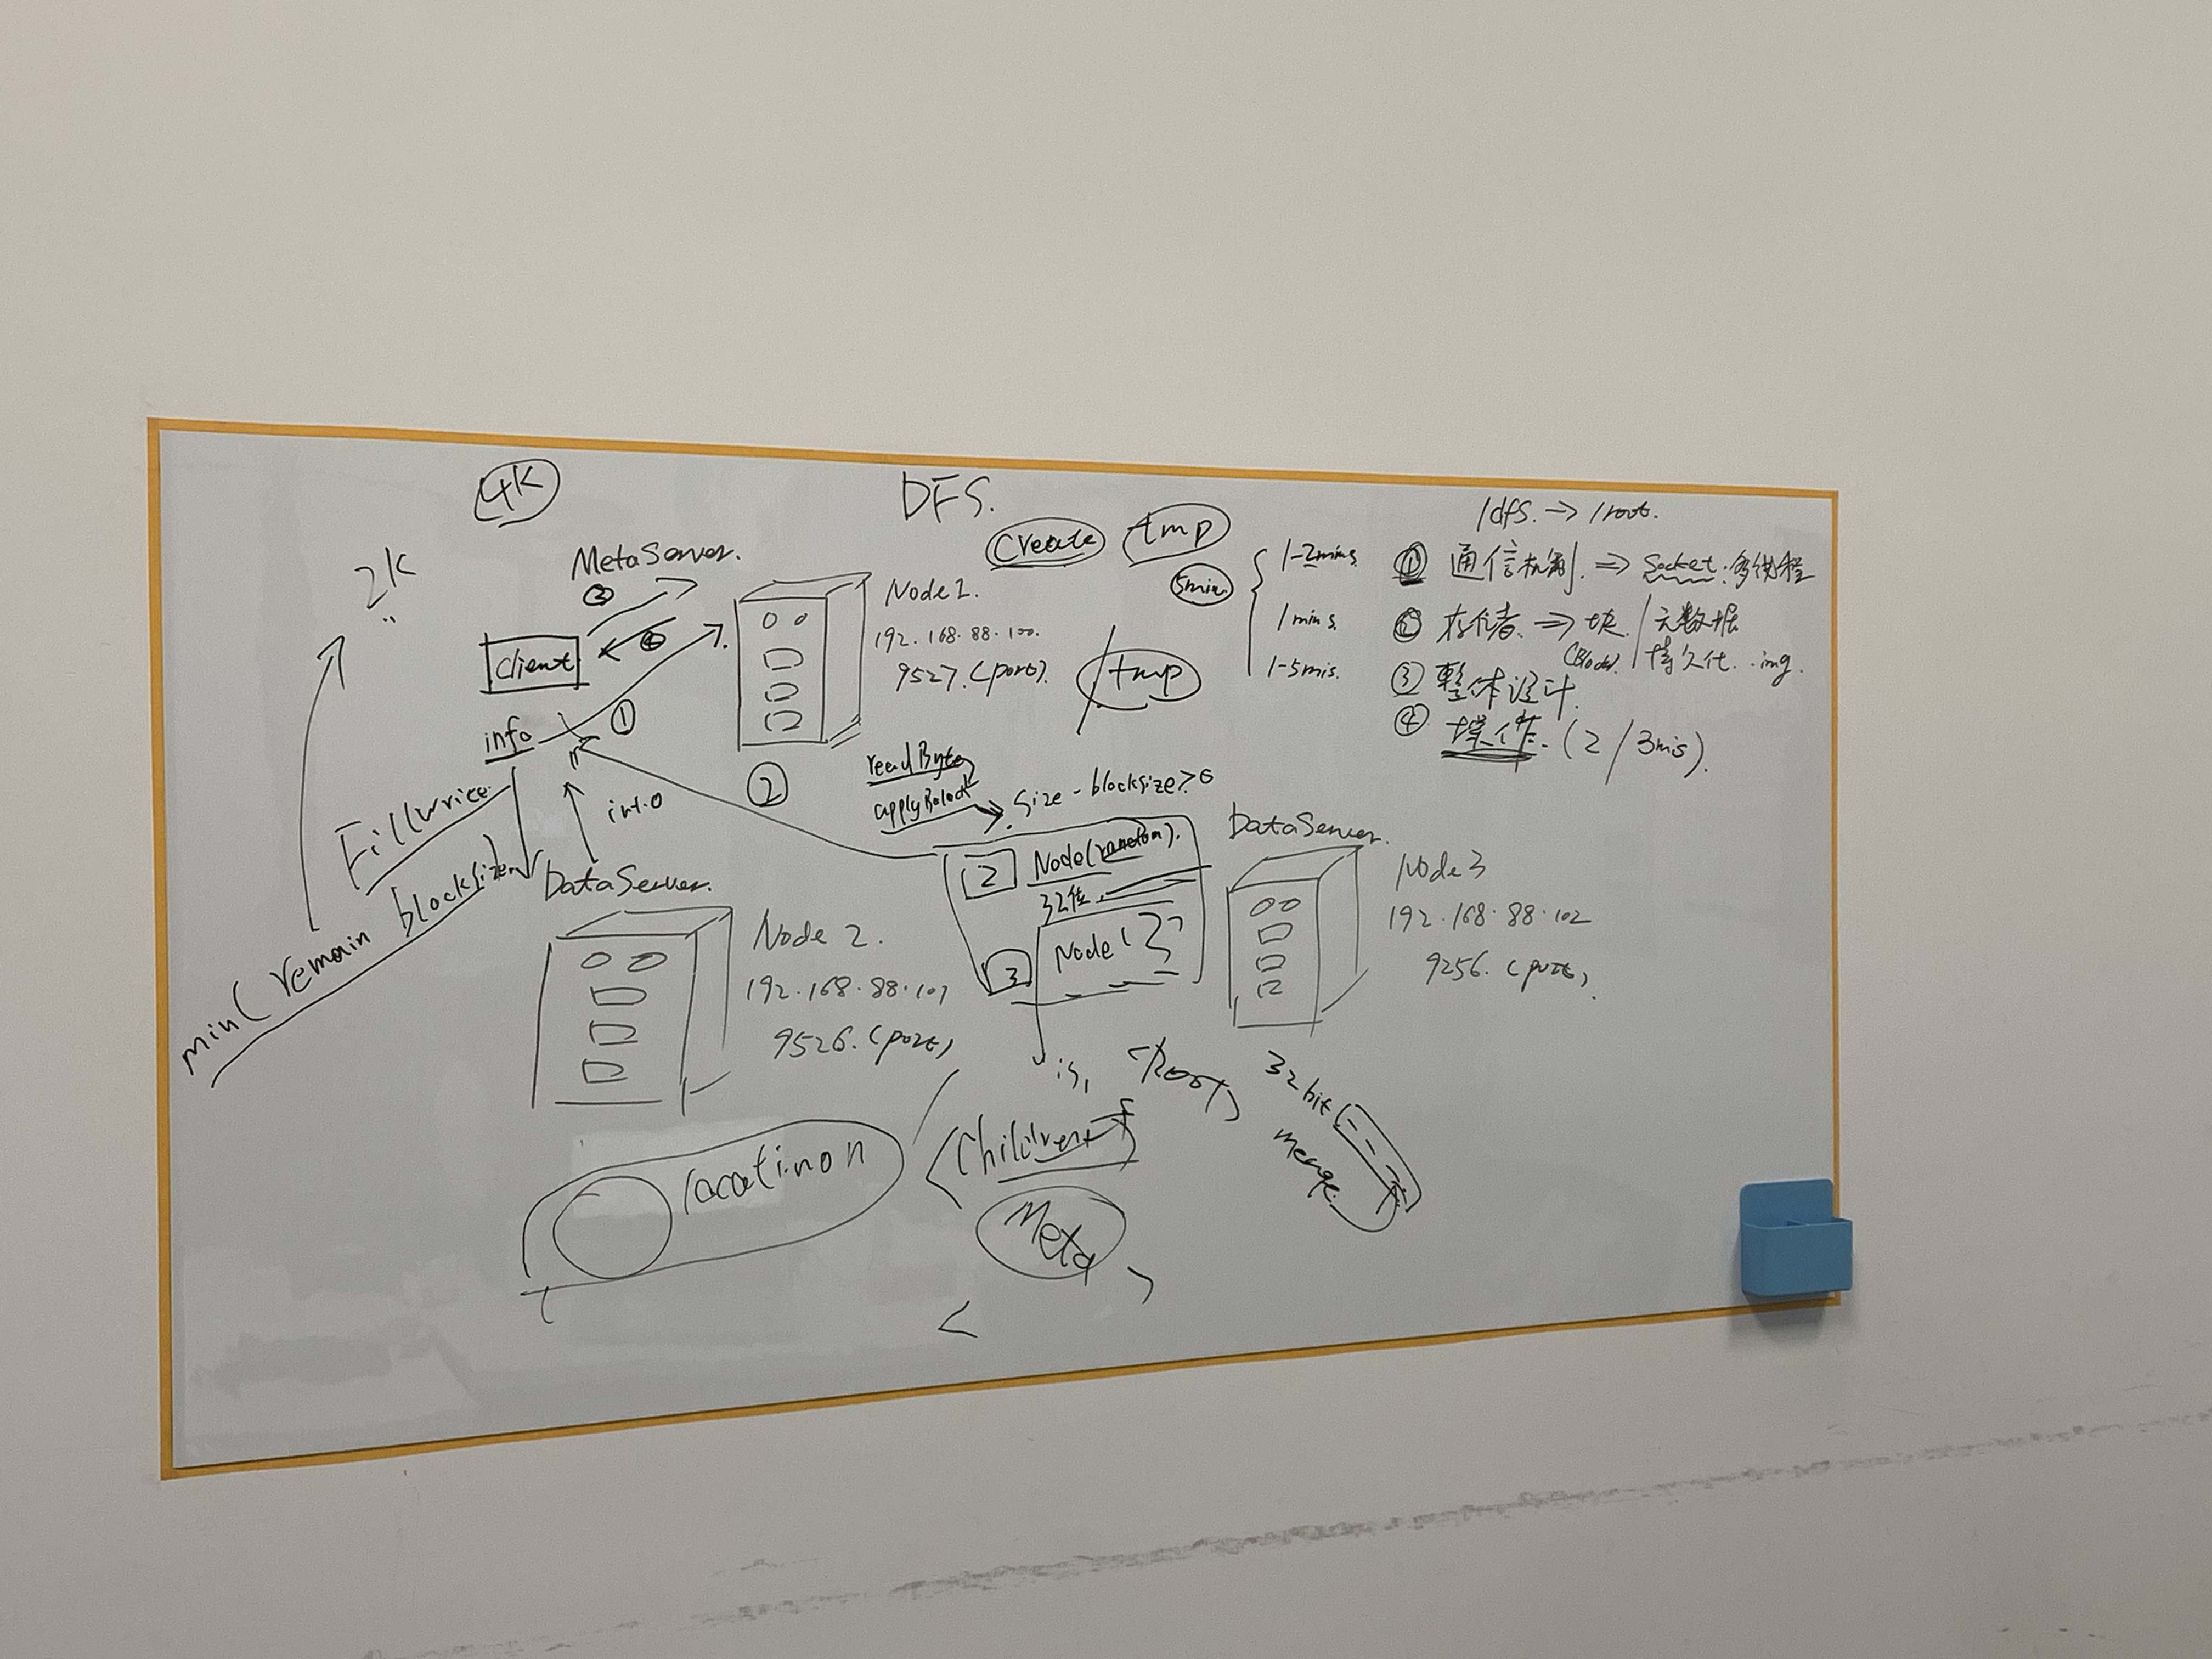 4K
DFS.
/dfs. → /root.
create
tmp
5min
1-2mins
1mins
1-5mis.
① 通信机制. ⇒ Socket.多线程
② 存储. ⇒ 块. / 元数据
(Block) 持久化. .img.
③ 整体设计.
④ 操作. (2/3mis).
2K
MetaServer.
③
④
client
info
①
Node1.
192.168.88.100.
9527.(port).
/tmp
②
readByte
applyBolock
size - blocksize>0
info
min( remain blocksize)
DataServer.
Node 2.
192.168.88.101
9526.(port)
2
Node(random).
32位
3
Node(
DataServer.
Node3
192.168.88.102
9256.(port)
is,
<Root>
32bit
merge
<Children
Meta
locatinon